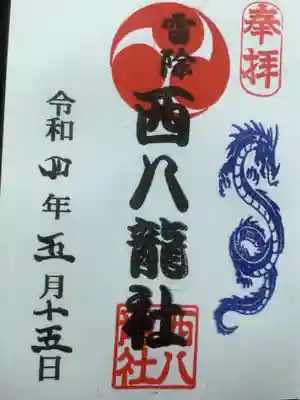 奉拝
雷除
西八龍社
西八龍社
令和四年五月十五日